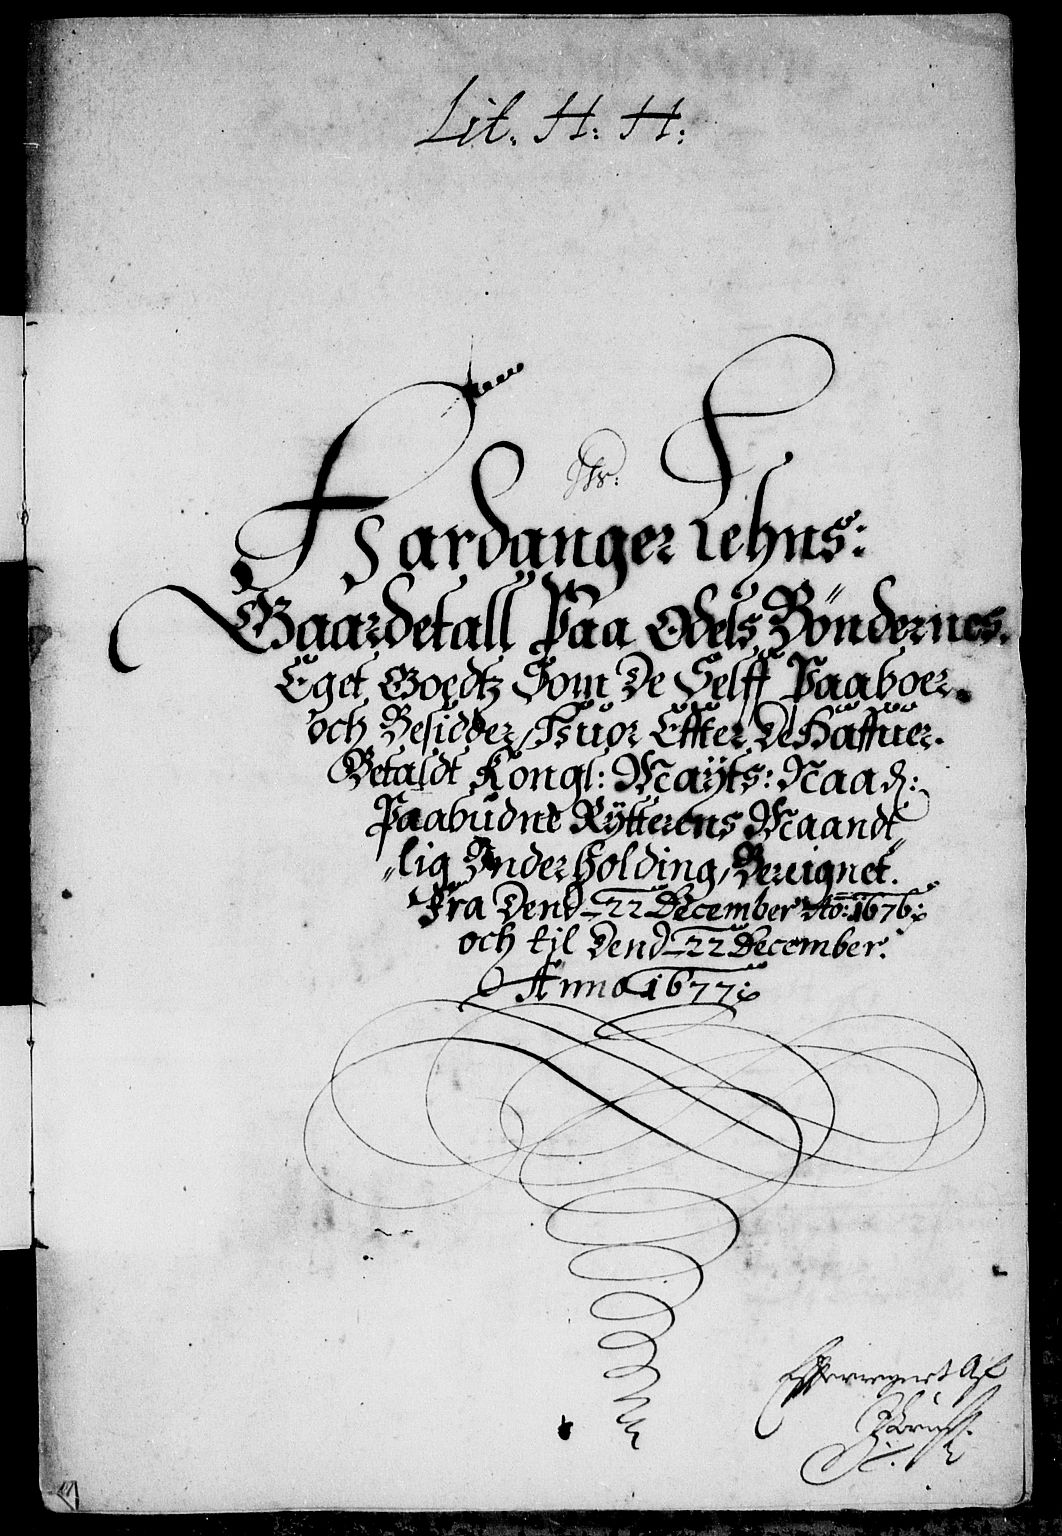 Lit. H: H:
Hardanger Lehns:
Gaardetall Paa Odels Böndernes.
Eget Goedtz Som De Selff Paaboer.
och Besidder, Huor Effter De Haffuer.
Betaldt Kongl: Maÿts: Naad:
Paabudne Rÿtterens Maandt„
„lig Vnderholding, Beregnet.
Fra Dend 22 December Ao: 1676:
och til Dend 22 December.
Anno 1677:
Efterregnet Af